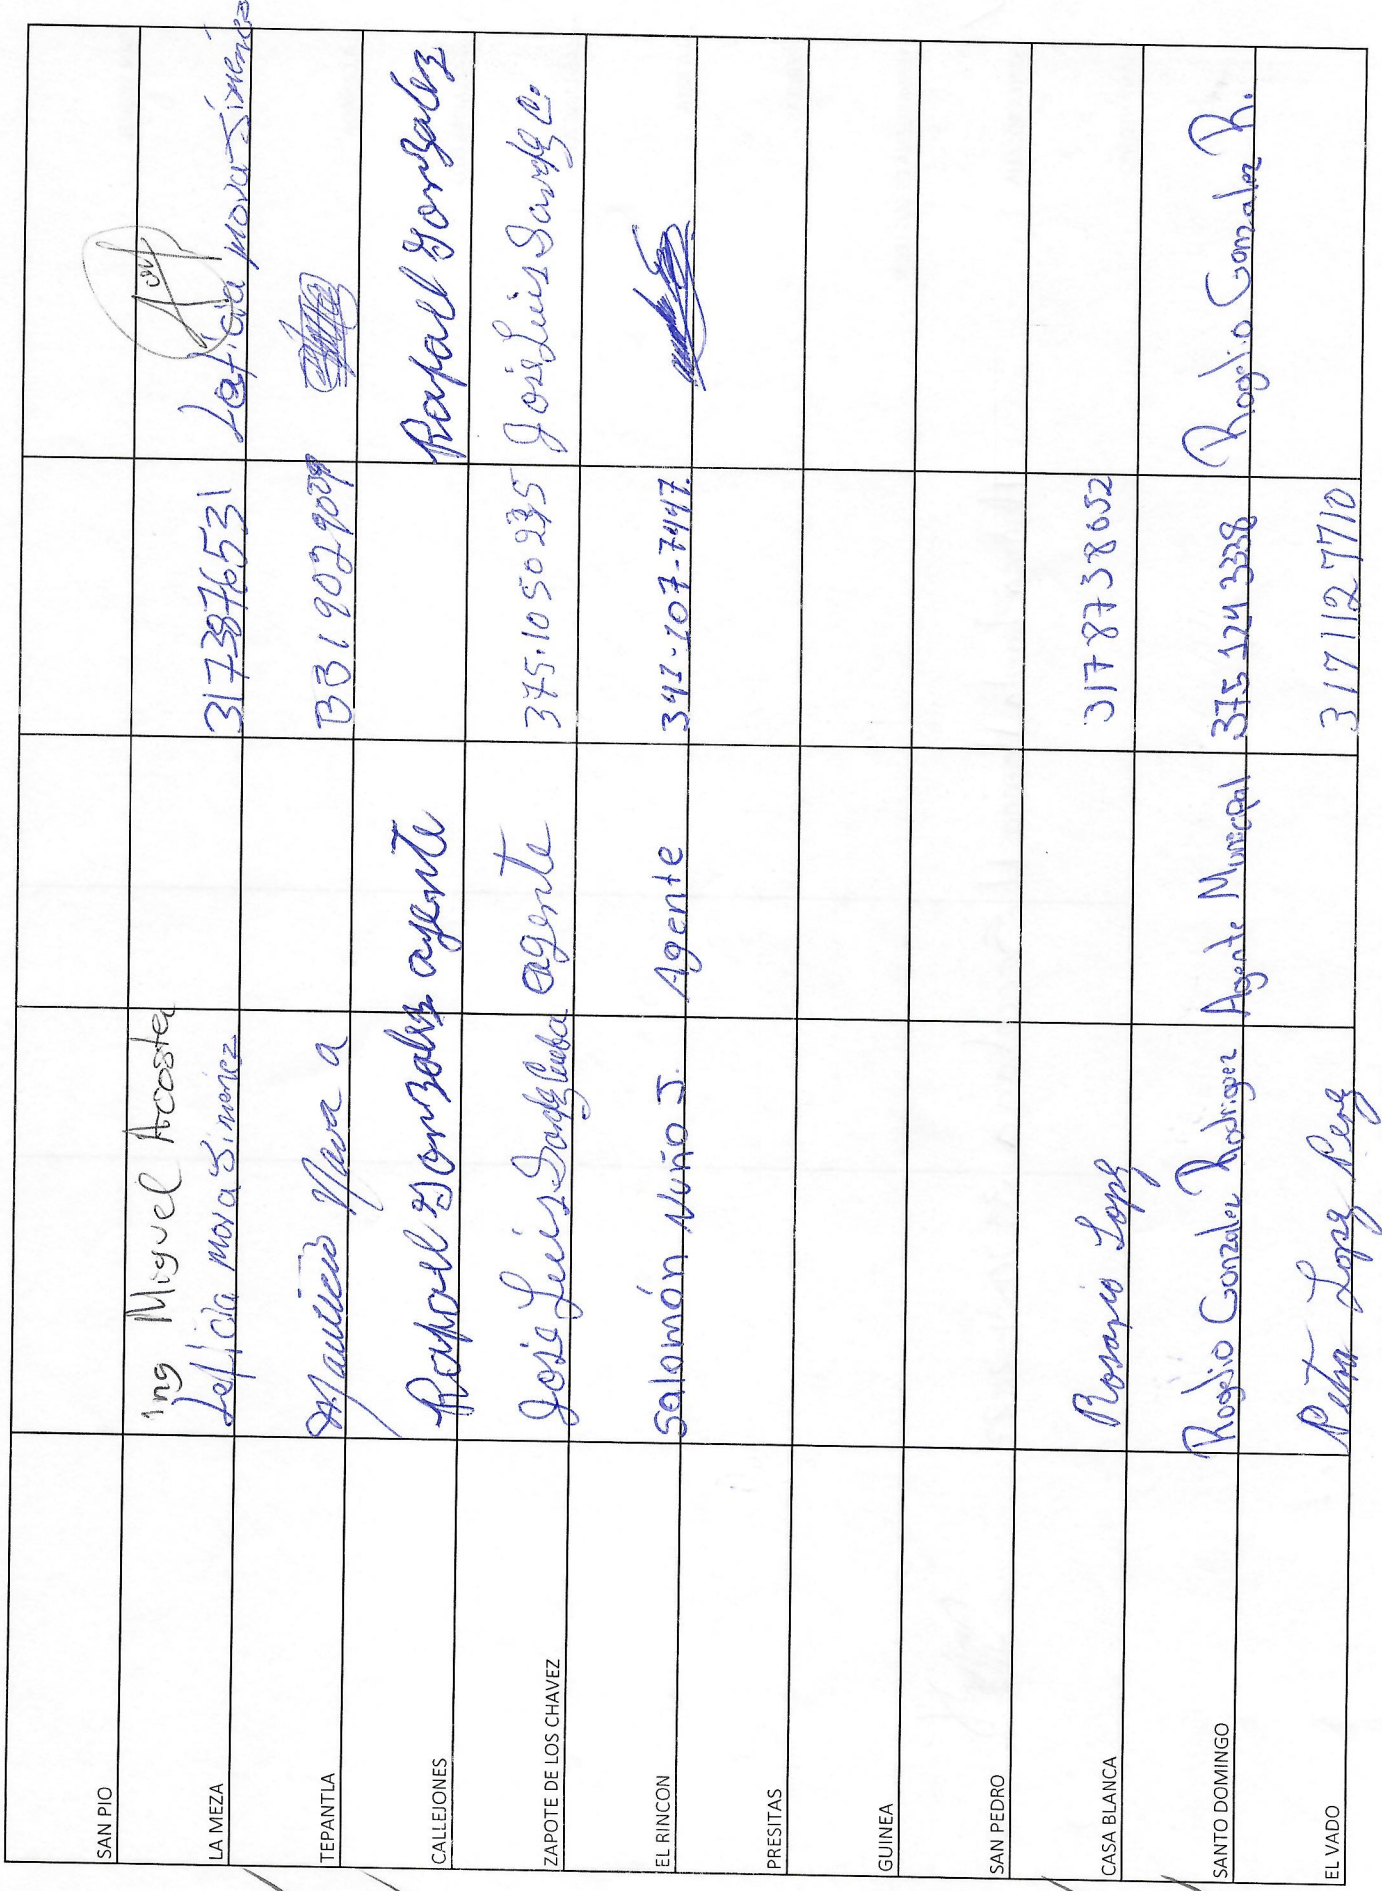 SAN PIO
LA MEZA Ing Miguel Acosta
Leticia Mora Jimenez 3173876531 Leticia Mora Jimenez
TEPANTLA Mauricio Nava a
CALLEJONES Rafael Gonzalez agente Rafael Gonzalez
ZAPOTE DE LOS CHAVEZ Jose Luis Sandz agente 375.1050235 Jose Luis Sandz C.
EL RINCON Salomón Nuño J. Agente 341-107-7447.
PRESITAS
GUINEA
SAN PEDRO
CASA BLANCA Rosario Lopez 3178738652
SANTO DOMINGO Rogelio Gonzalez Rodriguez Agente Municipal 375 124 3338 Rogelio Gonzalez R.
EL VADO Petra Lopez Perez 3171127710